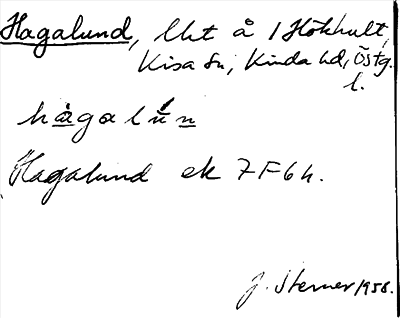 Hagalund, lht å 1 Hökhult,
Kisa sn, Kinda hd, Östg.
l.
hagalun
Hagalund ek 7F6h.
J. Sterner 1958.